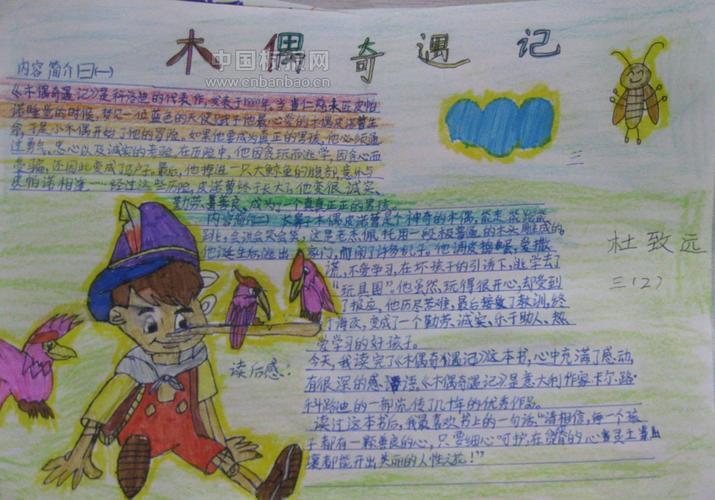 木偶奇遇记
中国板报网
www.cnbanbao.cn
内容简介(一)
《木偶奇遇记》是科洛迪的代表作,发表于1880年,当
诺睡觉的时候,梦见一位蓝色的天使
于是小木偶开始了他的冒险。如果他要成为真正的男孩,他必须通
过勇气、忠心以及诚实的考验。在历险中,他因贪玩而逃学,因贪心而
受骗,还因此变成了驴子。最后,他掉进一只大鲸鱼的腹部,意外与
皮帕诺相逢……经过这些历险,皮诺曹终于长大了,他变得诚实、
勤劳、善良,成为了一个真真正正的男孩。
内容简介(二)木鼻子木偶皮诺曹是个神奇的木偶,能走
跳,会说会哭会笑,这是老杰佩托用一段
他诞生后逃出家门,而闹了许多乱子。他调皮捣蛋,爱撒
谎,不爱学习,在坏孩子的引诱下,逃学去了
“玩具国”他虽然,玩得很开心,却受到
了报应,他历尽苦难,最后接受了教训,终
于悔改,变成了一个勤劳、诚实、乐于助人、热
爱学习的好孩子。
读后感:
今天,我读完了《木偶奇遇记》这本书,心中充满了感动,
有很深的感 《木偶奇遇记》是意大利作家卡尔·路·
科路迪的一部流传了几十年的优秀作品。
读过这本书后,我最喜欢书上的一句话:“请相信,每一个孩
子都有一颗善良的心,只要细心呵护,在
壤都能开出美丽的人性之花!”
三
杜致远
三(2)